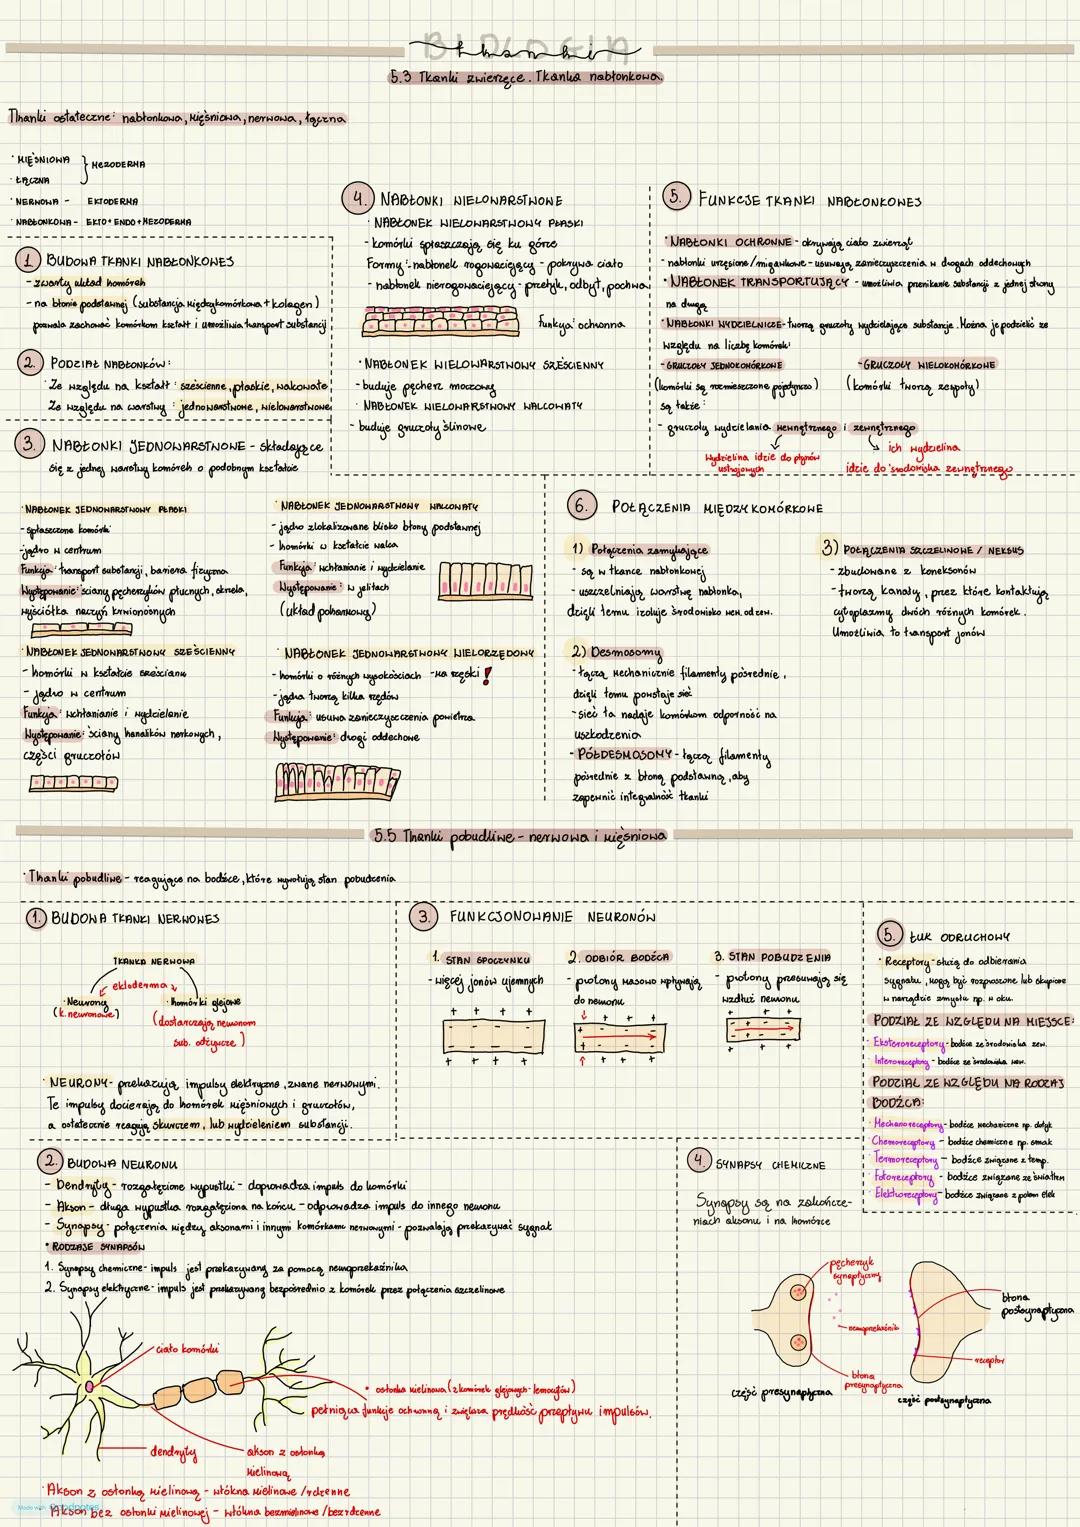 BIOLOGIA
tkanki
5.3 Tkanki zwierzęce. Tkanka nabłonkowa.
Tkanki ostateczne: nabłonkowa, mięśniowa, nerwowa, łączna
· MIĘŚNIOWA } MEZODERMA
· ŁĄCZNA
· NERWOWA - EKTODERMA
· NABŁONKOWA - EKTO + ENDO + MEZODERMA
1. BUDOWA TKANKI NABŁONKOWEJ
- zwarty układ komórek
- na błonie podstawnej (substancja międzykomórkowa + kolagen)
pozwala zachować komórkom kształt i umożliwia transport substancji
2. PODZIAŁ NABŁONKÓW:
Ze względu na kształt: sześcienne, płaskie, walcowate
Ze względu na warstwy: jednowarstwowe, wielowarstwowe
3. NABŁONKI JEDNOWARSTWOWE - składające
się z jednej warstwy komórek o podobnym kształcie
· NABŁONEK JEDNOWARSTWOWY PŁASKI
- spłaszczone komórki
- jądro w centrum
Funkcja: transport substancji, bariera fizyczna
Występowanie: ściany pęcherzyków płucnych, okrela,
wyściółka naczyń krwionośnych
· NABŁONEK JEDNOWARSTWOWY SZEŚCIENNY
- komórki w kształcie sześcianu
- jądro w centrum
Funkcja: wchłanianie i wydzielanie
Występowanie: ściany kanalików nerkowych,
części gruczołów
· NABŁONEK JEDNOWARSTWOWY WALCOWATY
- jądro zlokalizowane blisko błony podstawnej
- komórki w kształcie walca
Funkcja: wchłanianie i wydzielanie
Występowanie: w jelitach
(układ pokarmowy)
· NABŁONEK JEDNOWARSTWOWY WIELORZĘDOWY
- komórki o różnych wysokościach - ma rzęski !
- jądra tworzą kilka rzędów
Funkcja: usuwa zanieczyszczenia powietrza
Występowanie: drogi oddechowe
4. NABŁONKI WIELOWARSTWOWE
· NABŁONEK WIELOWARSTWOWY PŁASKI
- komórki spłaszczają się ku górze
Formy: - nabłonek rogowaciejący - pokrywa ciało
- nabłonek nierogowaciejący - przełyk, odbyt, pochwa
Funkcja: ochronna
· NABŁONEK WIELOWARSTWOWY SZEŚCIENNY
- buduje pęcherz moczowy
· NABŁONEK WIELOWARSTWOWY WALCOWATY
- buduje gruczoły ślinowe
5. FUNKCJE TKANKI NABŁONKOWEJ
· NABŁONKI OCHRONNE - okrywają ciało zwierząt
- nabłonki urzęsione/migawkowe - usuwają zanieczyszczenia w drogach oddechowych
· NABŁONEK TRANSPORTUJĄCY - umożliwia przenikanie substancji z jednej strony
na drugą
· NABŁONKI WYDZIELNICZE - tworzą gruczoły wydzielające substancje. Można je podzielić ze
względu na liczbę komórek:
- GRUCZOŁY JEDNOKOMÓRKOWE
(komórki są rozmieszczone pojedynczo)
- GRUCZOŁY WIELOKOMÓRKOWE
(komórki tworzą zespoły)
są także:
- gruczoły wydzielania wewnętrznego i zewnętrznego
wydzielina idzie do płynów
ustrojowych
ich wydzielina
idzie do środowiska zewnętrznego
6. POŁĄCZENIA MIĘDZYKOMÓRKOWE
1) Połączenia zamykające
- są w tkance nabłonkowej
- uszczelniają warstwę nabłonka,
dzięki temu izoluje środowisko wew. od zew.
2) Desmosomy
- łączą mechanicznie filamenty pośrednie,
dzięki temu powstaje sieć
- sieć ta nadaje komórkom odporność na
uszkodzenia
- PÓŁDESMOSOMY - łączą filamenty
pośrednie z błoną podstawną, aby
zapewnić integralność tkanki
3) POŁĄCZENIA SZCZELINOWE / NEKSUS
- zbudowane z koneksonów
- tworzą kanały, przez które kontaktują
cytoplazmy dwóch różnych komórek.
Umożliwia to transport jonów
5.5 Tkanki pobudliwe - nerwowa i mięśniowa
· Tkanki pobudliwe - reagujące na bodźce, które wywołują stan pobudzenia
1. BUDOWA TKANKI NERWOWEJ
TKANKA NERWOWA
ektoderma
· Neurony
(k. neuronowe)
· komórki glejowe
(dostarczają neuronom
sub. odżywcze)
· NEURONY - przekazują impulsy elektryczne, zwane nerwowymi.
Te impulsy docierają do komórek mięśniowych i gruczołów,
a ostatecznie reagują skurczem, lub wydzieleniem substancji.
2. BUDOWA NEURONU
- Dendryty - rozgałęzione wypustki - doprowadza impuls do komórki
- Akson - długa wypustka rozgałęziona na końcu - odprowadza impuls do innego neuronu
- Synapsy - połączenia między aksonami i innymi komórkami nerwowymi - pozwalają przekazywać sygnał
· RODZAJE SYNAPSÓW
1. Synapsy chemiczne - impuls jest przekazywany za pomocą neuroprzekaźnika
2. Synapsy elektryczne - impuls jest przekazywany bezpośrednio z komórek przez połączenia szczelinowe
ciało komórki
· osłonka mielinowa (z komórek glejowych - lemocytów)
pełniąca funkcję ochronną i zwiększa prędkość przepływu impulsów.
dendryty
akson z osłonką
mielinową
· Akson z osłonką mielinową - włókna mielinowe / rdzenne
· Akson bez osłonki mielinowej - włókna bezmielinowe / bezrdzenne
Made with Goodnotes
3. FUNKCJONOWANIE NEURONÓW
1. STAN SPOCZYNKU
- więcej jonów ujemnych
+ + + +
- - - -
- - - -
+ + + +
2. ODBIÓR BODŹCA
- protony masowo wpływają
do neuronu
3. STAN POBUDZENIA
- protony przesuwają się
wzdłuż neuronu
4. SYNAPSY CHEMICZNE
Synapsy są na zakończe-
niach aksonu i na komórce
pęcherzyk
synaptyczny
neuroprzekaźnik
błona
presynaptyczna
część presynaptyczna
błona
postsynaptyczna
receptor
część postsynaptyczna
5. ŁUK ODRUCHOWY
· Receptory - służą do odbierania
sygnału, mogą być rozproszone lub skupione
w narządzie zmysłu np. w oku.
PODZIAŁ ZE WZGLĘDU NA MIEJSCE:
· Eksteroreceptory - bodźce ze środowiska zew.
· Interoreceptory - bodźce ze środowiska wew.
PODZIAŁ ZE WZGLĘDU NA RODZAJ
BODŹCA:
· Mechanoreceptory - bodźce mechaniczne np. dotyk
· Chemoreceptory - bodźce chemiczne np. smak
· Termoreceptory - bodźce związane z temp.
· Fotoreceptory - bodźce związane ze światłem
· Elektroreceptory - bodźce związane z polem elek